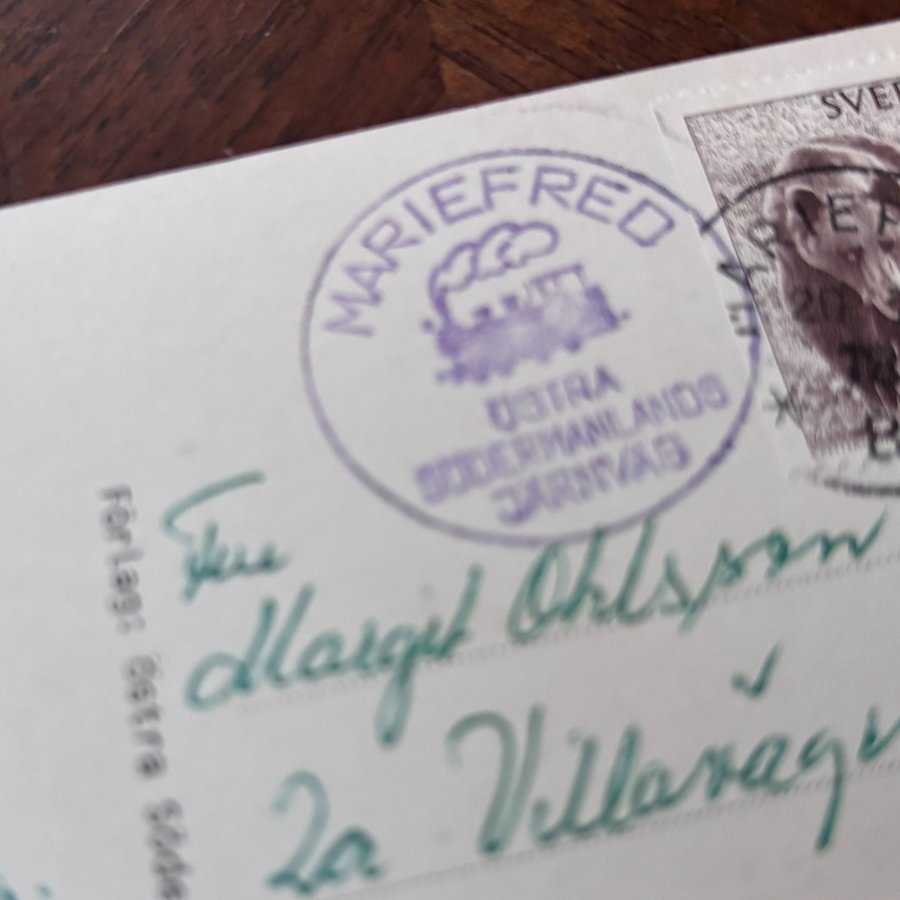 SVE
MARIEFRED
ÖSTRA
SÖDERMANLANDS
JÄRNVÄG
Förlag: Östra Söde
Fru
Margit Ohlsson
2a Villaväge